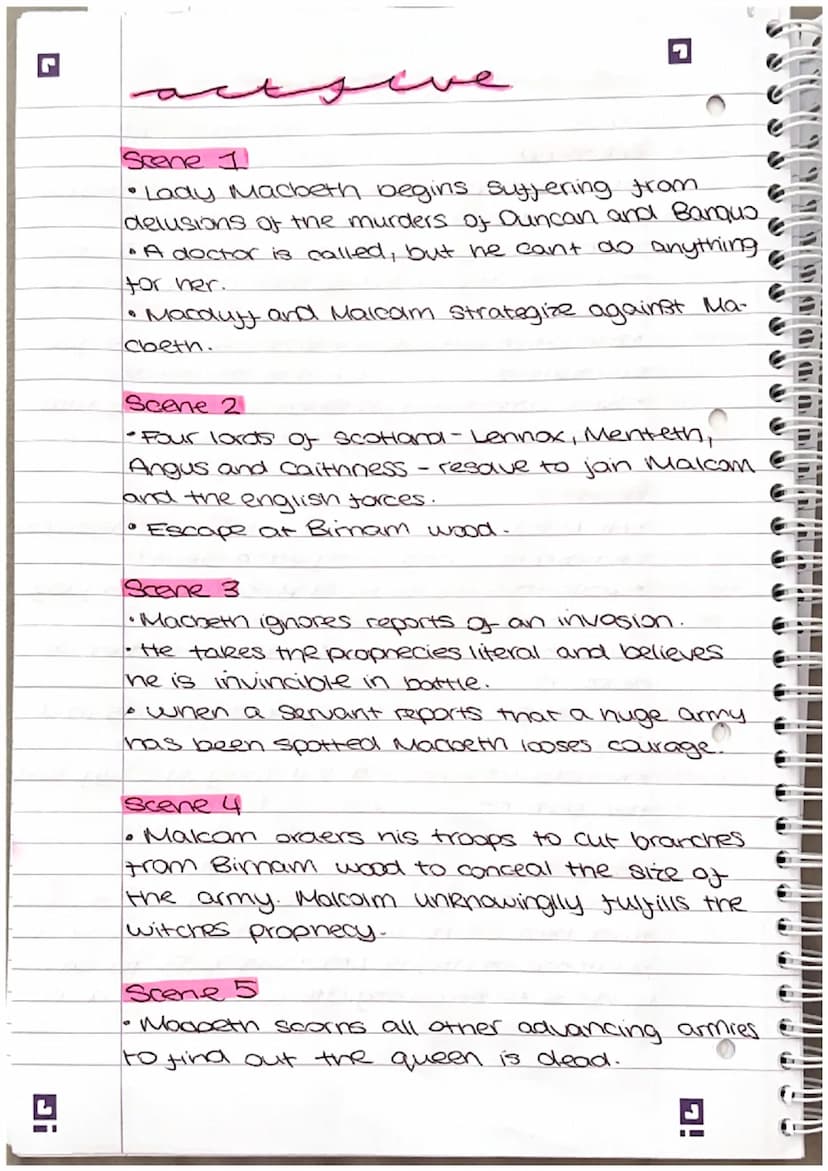 act five
Scene 1
• Lady Macbeth begins suffering from
delusions of the murders of Duncan and Banquo
• A doctor is called, but he cant do anything
for her.
• Macduff and Malcolm strategize against Ma-
cbeth.
Scene 2
• Four lords of Scotland - Lennox, Menteth,
Angus and Caithness - resolve to join Malcom
and the english forces.
• Escape at Birnam wood.
Scene 3
• Macbeth ignores reports of an invasion.
• He takes the prophecies literal and believes
he is invincible in battle.
• When a servant reports that a huge army
has been spotted Macbeth looses courage.
Scene 4
• Malcom orders his troops to cut branches
from Birnam wood to conceal the size of
the army. Malcolm unknowinglly fulfills the
witches prophecy.
Scene 5
• Macbeth scorns all other advancing armies
to find out the queen is dead.